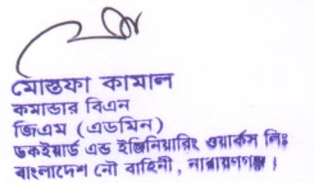 মোস্তফা কামাল
কমান্ডার বিএন
জিএম (এডমিন)
ডকইয়ার্ড এন্ড ইঞ্জিনিয়ারিং ওয়ার্কস লিঃ
বাংলাদেশ নৌ বাহিনী, নারায়ণগঞ্জ।